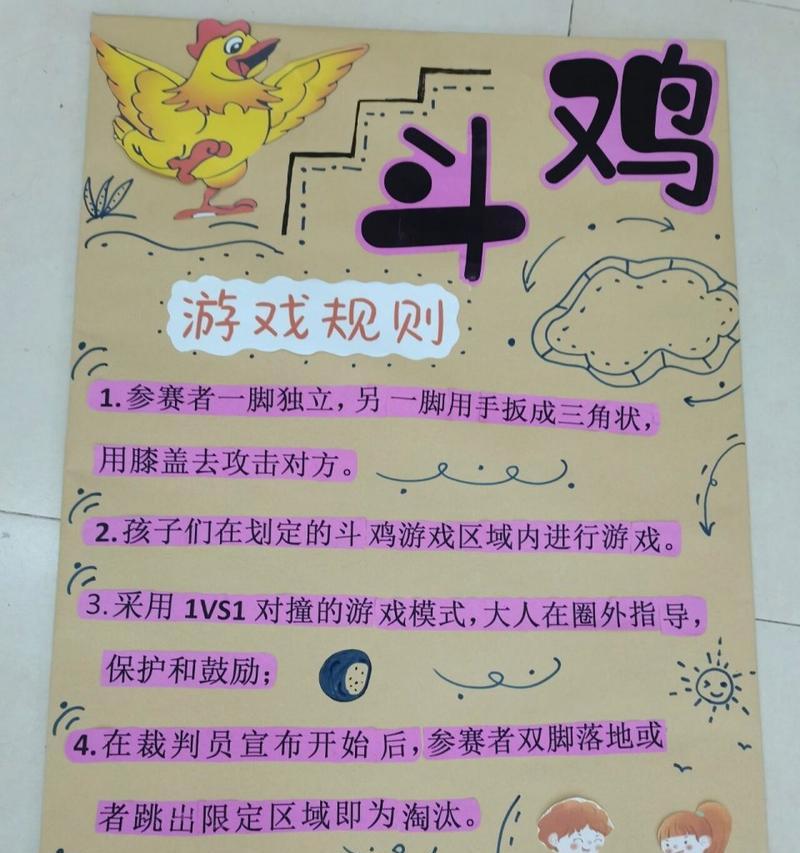 斗鸡
游戏规则
1.参赛者一脚独立，另一脚用手扳成三角状，
用膝盖去攻击对方。
2.孩子们在划定的斗鸡游戏区域内进行游戏。
3.采用1VS1对撞的游戏模式，大人在圈外指导，
保护和鼓励；
4.在裁判员宣布开始后，参赛者双脚落地或
者跳出限定区域即为淘汰。